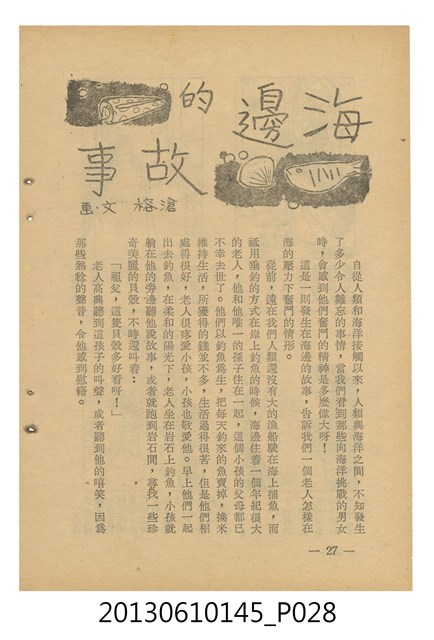 海邊的
故事
滄榕 文·畫
自從人類和海洋接觸以來，人類與海洋之間，不知發生
了多少令人難忘的事情，當我們看到那些向海洋挑戰的男女
時，會感到他們奮鬥的精神是多麼偉大呀！
這是一則發生在海邊的故事，告訴我們一個老人怎樣在
海的壓力下奮鬥的情形。
從前，遠在我們人類還沒有大的漁船駛在海上捕魚，而
祗用垂釣的方式在岸上釣魚的時候，海邊住着一個年紀很大
的老人，他和他唯一的孫子住在一起，這個小孩的父母都已
不幸去世了。他們以釣魚爲生，把每天釣來的魚賣掉，換米
維持生活，所獲得的錢並不多，生活過得很苦，但是他們相
處得很好，老人很疼愛小孩，小孩也敬愛他。早上他們一起
出去釣魚，在柔和的陽光下，老人坐在岩石上釣魚，小孩就
躺在他的旁邊聽他說故事，或者就跑到岩石間，尋找一些珍
奇美麗的貝殼，不時還叫着：
「祖父，這隻貝殼多好看呀！」
老人高興聽到這孩子的叫聲，或者聽到他的嘻笑，因爲
那些熟稔的聲音，令他感到慰藉。
— 27 —
20130610145_P028